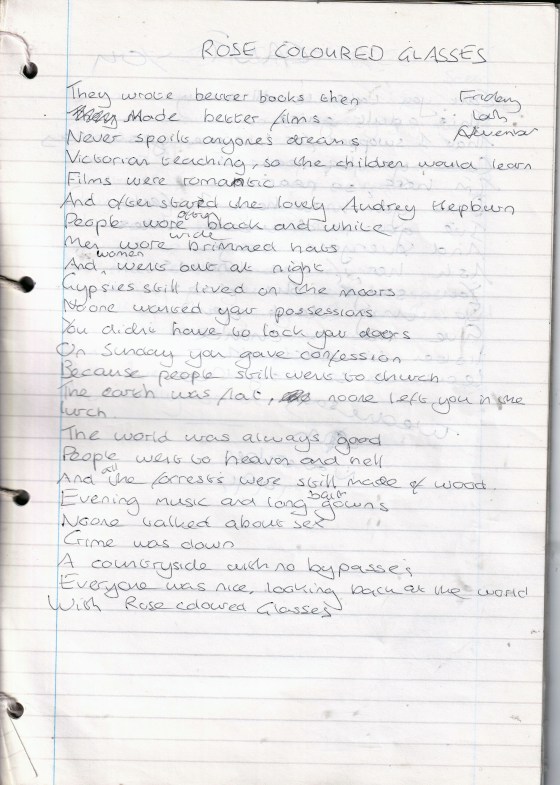 ROSE COLOURED GLASSES
They wrote better books then
Friday
Made better films
Never spoilt anyone's dreams
Victorian teaching, so the children would learn
Films were romantic
And often stared the lovely Audrey Hepburn
People wore only black and white
Men wore wide brimmed hats
And women went out at night
Gypsies still lived on the moors
Noone wanted your possessions
You didnt have to lock you doors
On Sunday you gave confession
Because people still went to church
The earth was flat, noone left you in the
lurch.
The world was always good
People went to heaven and hell
And all the forrests were still made of wood.
Evening music and long ball gowns
Noone talked about sex
Crime was down
A countryside with no bypasses
Everyone was nice, looking back at the world
With Rose coloured Glasses